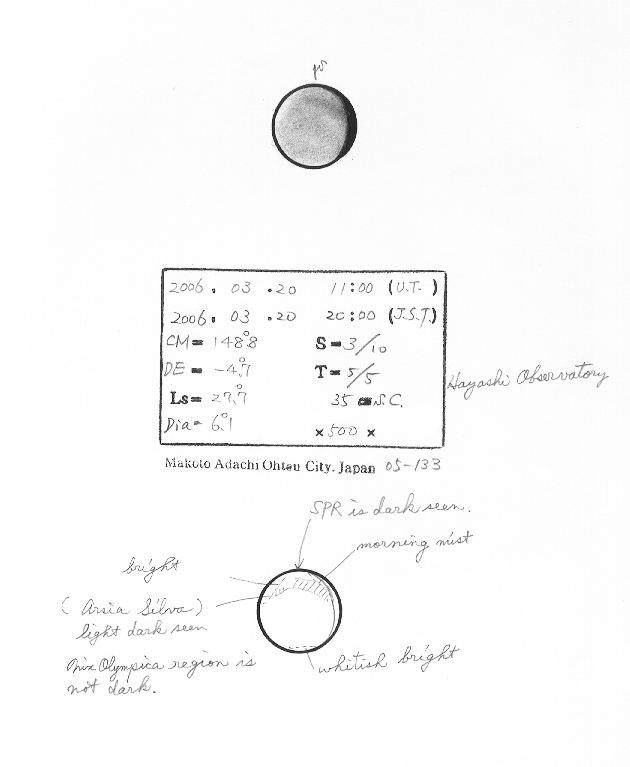 2006. 03 .20 11:00 (U.T. )
2006. 03 .20 20:00 (J.S.T.)
CM= 148°.8 S=3/10
DE = -4°.7 T=5/5
Ls= 27°.7 35 S.C.
Dia= 6.1
×500 ×
Hayashi Observatory
Makoto Adachi Ohtsu City. Japan 05-133
SPR is dark seen.
morning mist
bright
(Arsia Silva)
light dark seen
Nix Olympica region is
not dark.
whitish bright